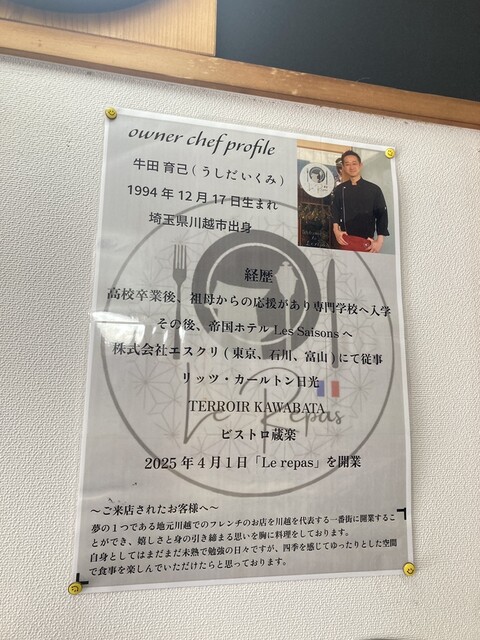 owner chef profile
牛田 育己 ( うしだ いくみ )
1994 年 12 月 17 日生まれ
埼玉県川越市出身
経歴
高校卒業後、祖母からの応援があり専門学校へ入学
その後、帝国ホテル Les Saisons へ
株式会社エスクリ ( 東京、石川、富山 ) にて従事
リッツ・カールトン日光
TERROIR KAWABATA
Le Repas
ビストロ蔵楽
2025 年 4 月 1 日「Le repas」を開業
～ご来店されたお客様へ～
夢の 1 つである地元川越でのフレンチのお店を川越を代表する一番街に開業するこ
とができ、嬉しさと身の引き締まる思いを胸に料理をしております。
自身としてはまだまだ未熟で勉強の日々ですが、四季を感じてゆったりとした空間
で食事を楽しんでいただけたらと思っております。